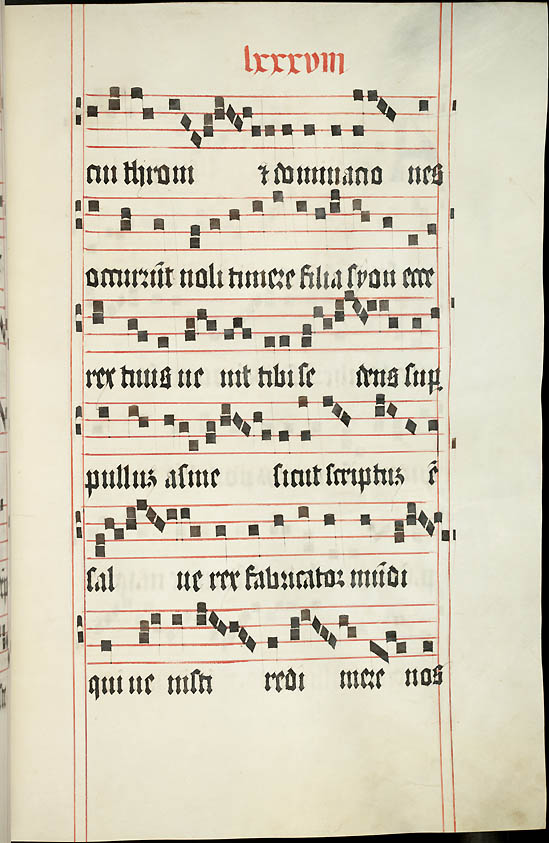 lxxxviii
cui throni ⁊ dominacio nes
occurrūt noli timere filia syon ecce
rex tuus ue nit tibi se dens sup
pulluꝫ asine sicut scriptuꝫ ē
sal ue rex fabricator mūdi
qui ue nisti redi mere nos